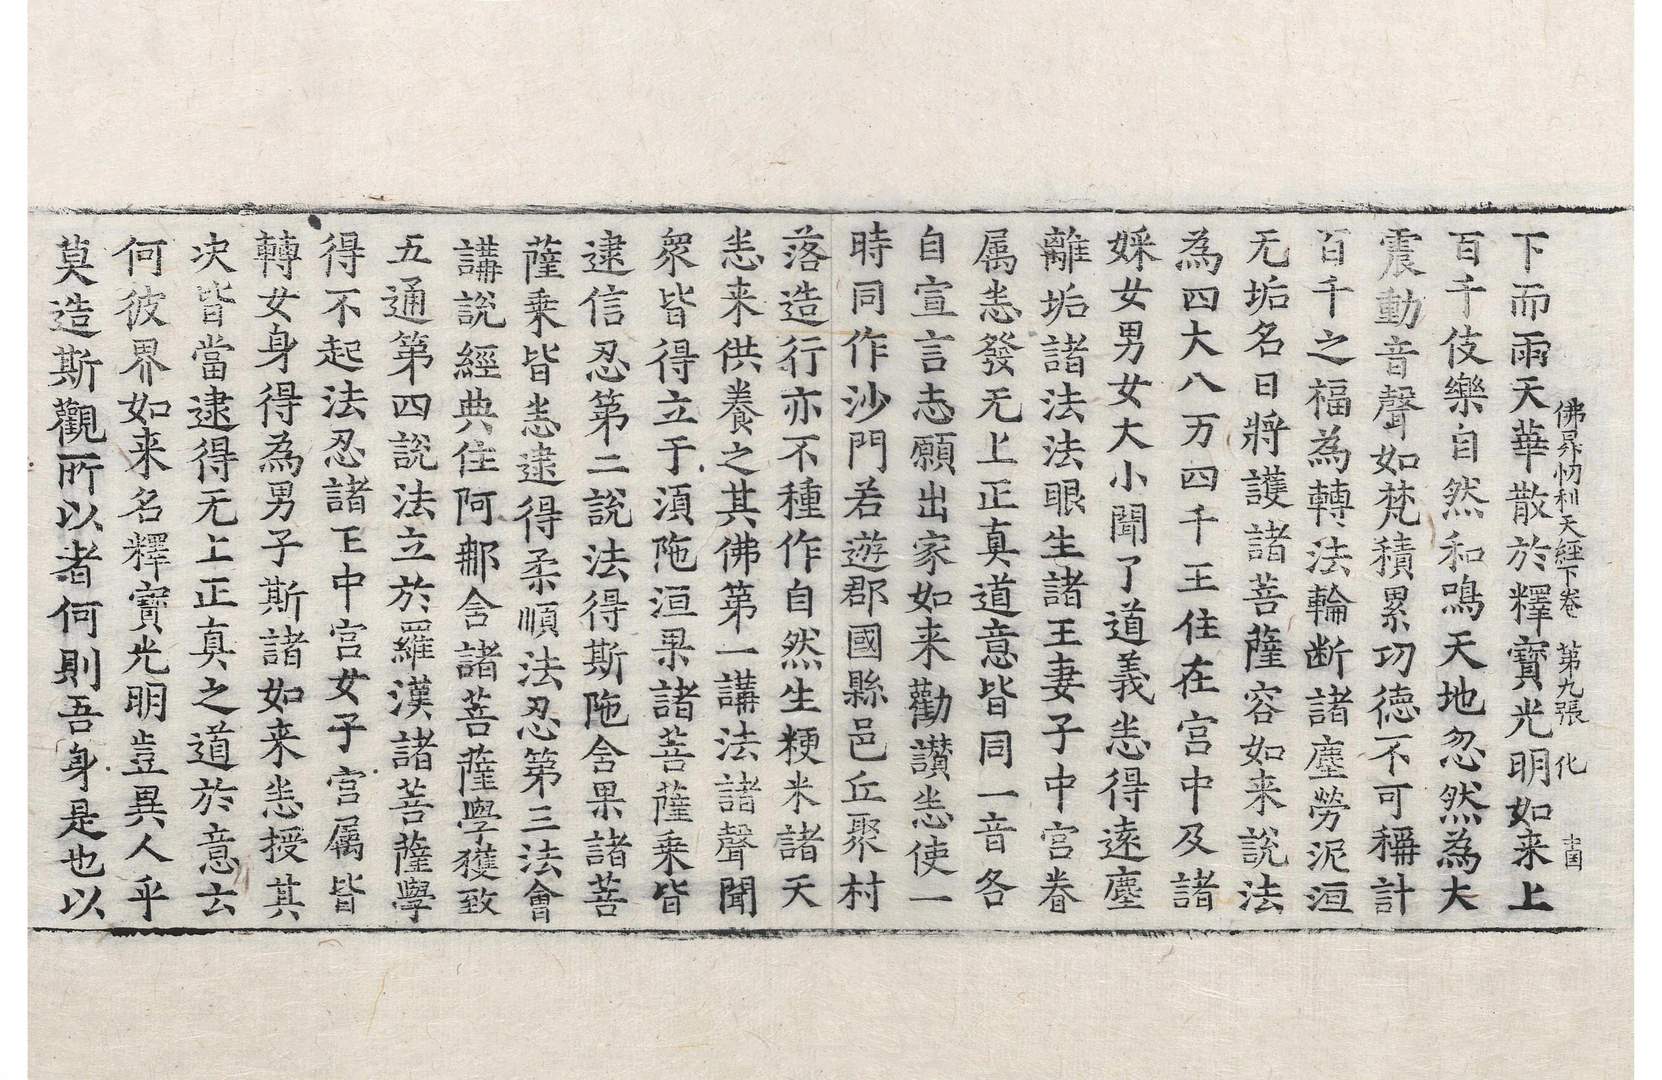 佛昇忉利天經下卷 第九張 化
下而雨天華散於釋寶光明如来上
百千伎樂自然和鳴天地忽然為大
震動音聲如梵積累功德不可稱計
百千之福為轉法輪断諸塵勞泥洹
无垢名曰將護諸菩薩容如来說法
為四大八万四千王住在宫中及諸
婇女男女大小聞了道義恙得遠塵
離垢諸法法眼生諸王妻子中宫眷
属恙發无上正真道意皆同一音各
自宣言志願出家如来勸讃恙使一
時同作沙門若遊郡國縣邑丘聚村
落造行亦不種作自然生粳米諸天
恙来供養之其佛第一講法諸聲聞
衆皆得立于湏陁洹果諸菩薩乗皆
逮信忍第二說法得斯陁含果諸菩
薩乗皆恙逮得柔順法忍第三法會
講說經典住阿那含諸菩薩學獲致
五通第四說法立於羅漢諸菩薩學
得不起法忍諸正中宫女子宫属皆
轉女身得為男子斯諸如来恙授其
决皆當逮得无上正真之道於意云
何彼界如来名釋寶光明豈異人乎
莫造斯觀所以者何則吾身是也以